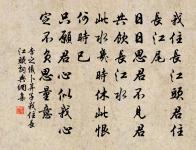 我住長江頭君住
長江尾
日日思君不見君
共飲長江水
此水幾時休此恨
何時已
只願君心似我心
定不負思量意
李之儀卜算子我住長
江頭詞典網集